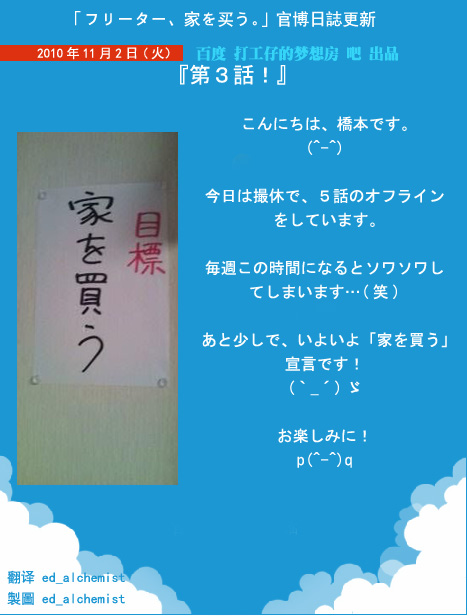 「フリーター、家を买う。」官博日誌更新
2010年11月2日(火) 百度 打工仔的梦想房 吧 出品
『第3話!』
こんにちは、橋本です。
(^-^)
今日は撮休で、5話のオフライン
をしています。
毎週この時間になるとソワソワし
てしまいます…(笑)
あと少しで、いよいよ「家を買う」
宣言です!
(｀_´)ゞ
お楽しみに!
p(^-^)q
目標
家を買う
翻译 ed_alchemist
製圖 ed_alchemist